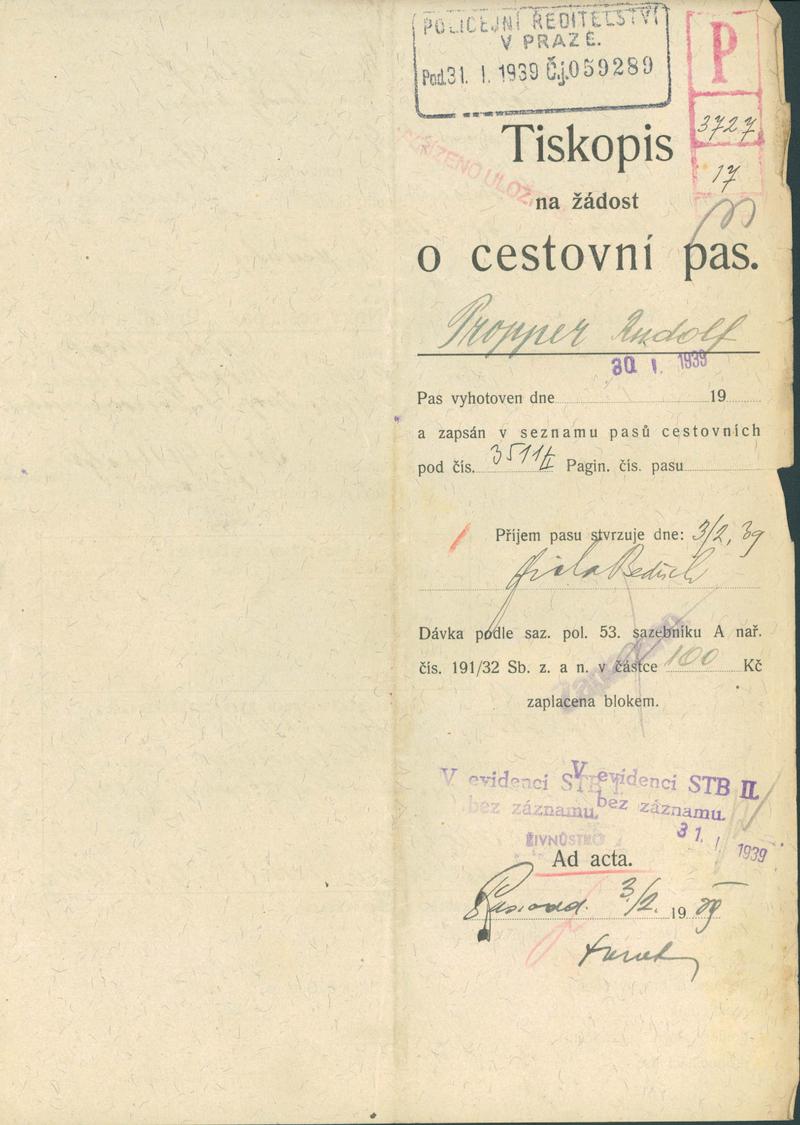 POLICEJNÍ ŘEDITELSTVÍ
V PRAZE.
Pod. 31. I. 1939 Č.j. 059289
P
3727
17
Tiskopis
na žádost
o cestovní pas.
Propper Rudolf
30. I. 1939
Pas vyhotoven dne 19
a zapsán v seznamu pasů cestovních
pod čís. 3511/II Pagin. čís. pasu
Příjem pasu stvrzuje dne: 3/2, 39
Dávka podle saz. pol. 53. sazebníku A nař.
čís. 191/32 Sb. z. a n. v částce 100 Kč
zaplacena blokem.
V evidenci STB I.
bez záznamu.
V evidenci STB II.
bez záznamu.
31. I. 1939
Ad acta.
3/2. 19 39